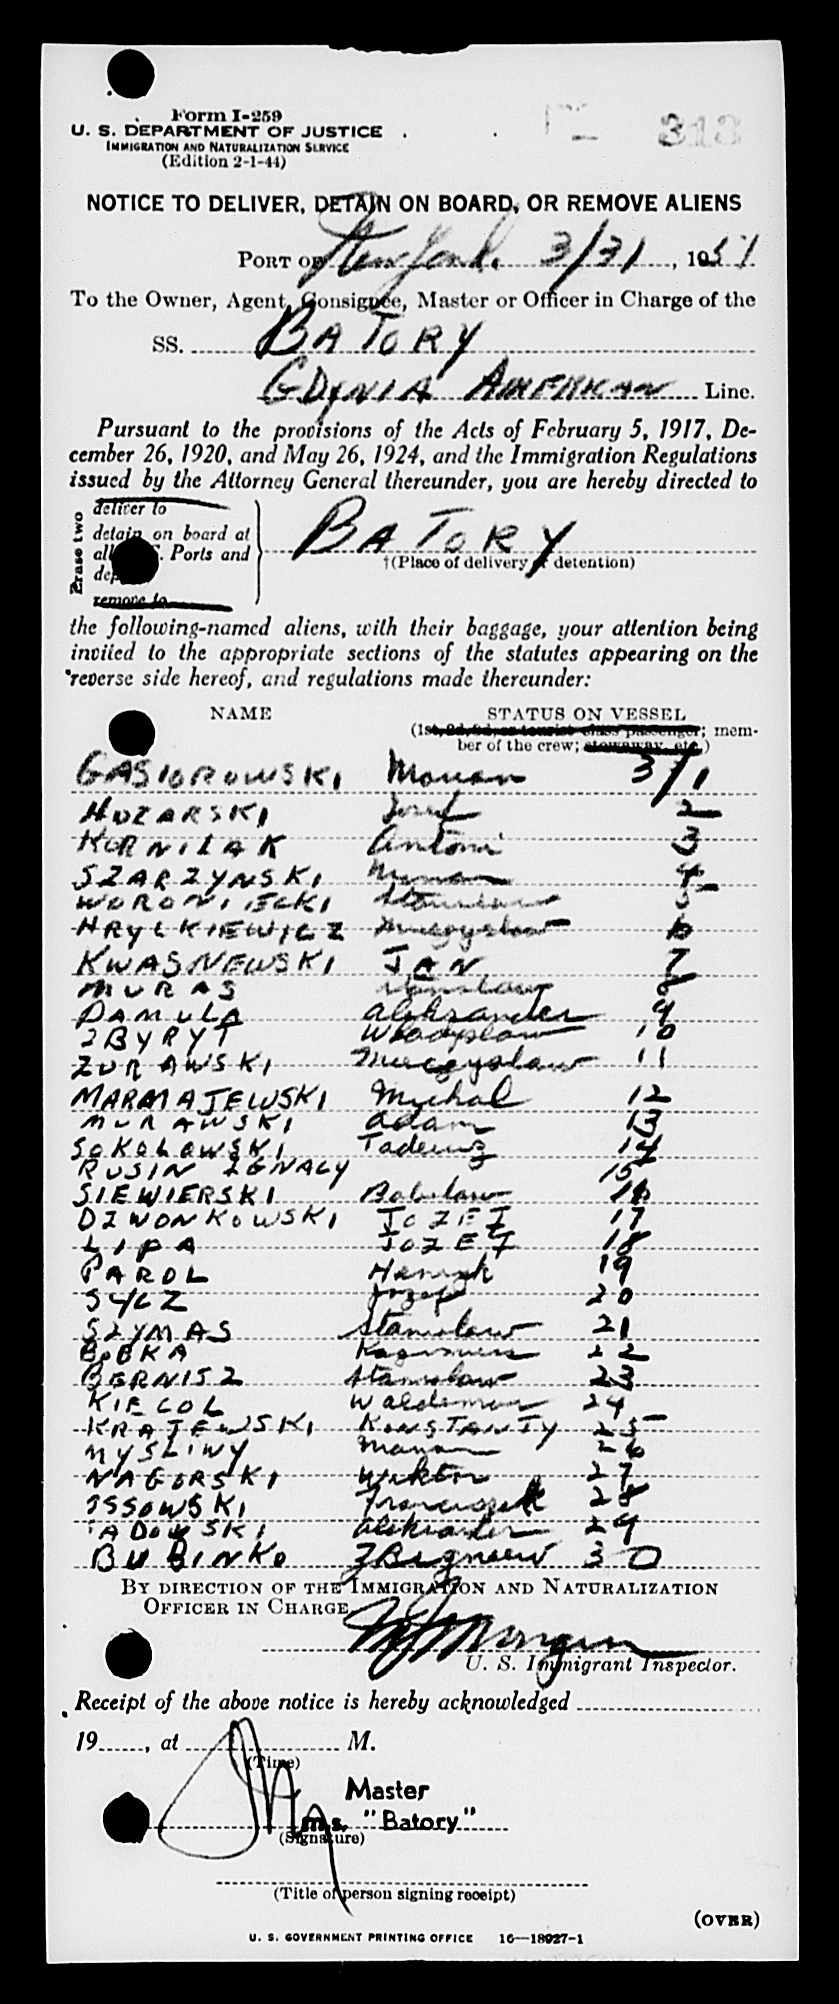 Form I-259
U. S. DEPARTMENT OF JUSTICE
IMMIGRATION AND NATURALIZATION SERVICE
(Edition 2-1-44)
313
NOTICE TO DELIVER, DETAIN ON BOARD, OR REMOVE ALIENS
PORT OF New York 3/31, 1951
To the Owner, Agent, Consignee, Master or Officer in Charge of the
SS. BATORY
GDYNIA AMERICAN Line.
Pursuant to the provisions of the Acts of February 5, 1917, De-
cember 26, 1920, and May 26, 1924, and the Immigration Regulations
issued by the Attorney General thereunder, you are hereby directed to
Erase two
deliver to
detain on board at
all Ports and
remove to
BATORY
†(Place of delivery or detention)
the following-named aliens, with their baggage, your attention being
invited to the appropriate sections of the statutes appearing on the
reverse side hereof, and regulations made thereunder:
NAME STATUS ON VESSEL
(1st, 2d, 3d, or tourist class passenger; mem-
ber of the crew; stowaway, etc.)
GASIOROWSKI Marian 3/1
HUZARSKI Jozef 2
KORNILAK Antoni 3
SZARZYNSKI 4
WORONIECKI Stanislaw 5
HRYCKIEWICZ Mieczyslaw 6
KWASNEWSKI JAN 7
MURAS 8
DAMULA Aleksander 9
ZBYRYT Wladyslaw 10
ZURAWSKI Mieczyslaw 11
MARMAJEWSKI Michal 12
MURAWSKI Adam 13
SOKOLOWSKI Tadeusz 14
RUSIN IGNACY 15
SIEWIERSKI Boleslaw 16
DZWONKOWSKI JOZEF 17
LIPA JOZEF 18
PAROL Henryk 19
SYCZ Jozef 20
SZYMAS Stanislaw 21
BOBKA Kazimierz 22
BERNISZ Stanislaw 23
KIECOL Waldemar 24
KRAJEWSKI KONSTANTY 25
MYSLIWY Marian 26
NAGORSKI Wiktor 27
ISSOWSKI Franciszek 28
ADOWSKI Aleksander 29
BUBINKO Zbigniew 30
BY DIRECTION OF THE IMMIGRATION AND NATURALIZATION
OFFICER IN CHARGE
Morgan
U. S. Immigrant Inspector.
Receipt of the above notice is hereby acknowledged
19, at M.
(Time)
Master
m.s. "Batory"
(Signature)
(Title of person signing receipt)
(OVER)
U. S. GOVERNMENT PRINTING OFFICE 16—18927-1